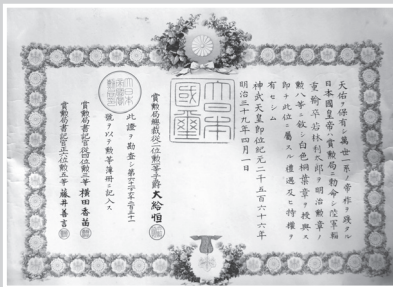 天佑ヲ保有シ萬世一系ノ帝祚ヲ踐タル
日本國皇帝ハ賞勲局ニ勅命シ陸軍輜
重輸卒若林利太郎ヲ明治勲章ノ
勲八等ニ叙シ白色桐葉章ヲ授與ス
即チ此位ニ屬スル禮遇及ヒ特權ヲ
有セシム
神武天皇即位紀元二千五百六十六年
明治三十九年四月一日
大日本國璽
賞勲局總裁從二位勲一等子爵大給恒
此證ヲ勘査シ第
號ヲ以テ勲等簿冊ニ記入ス
賞勲局書記官從四位勲三等横田香苗
賞勲局書記官正六位勲五等藤井善言